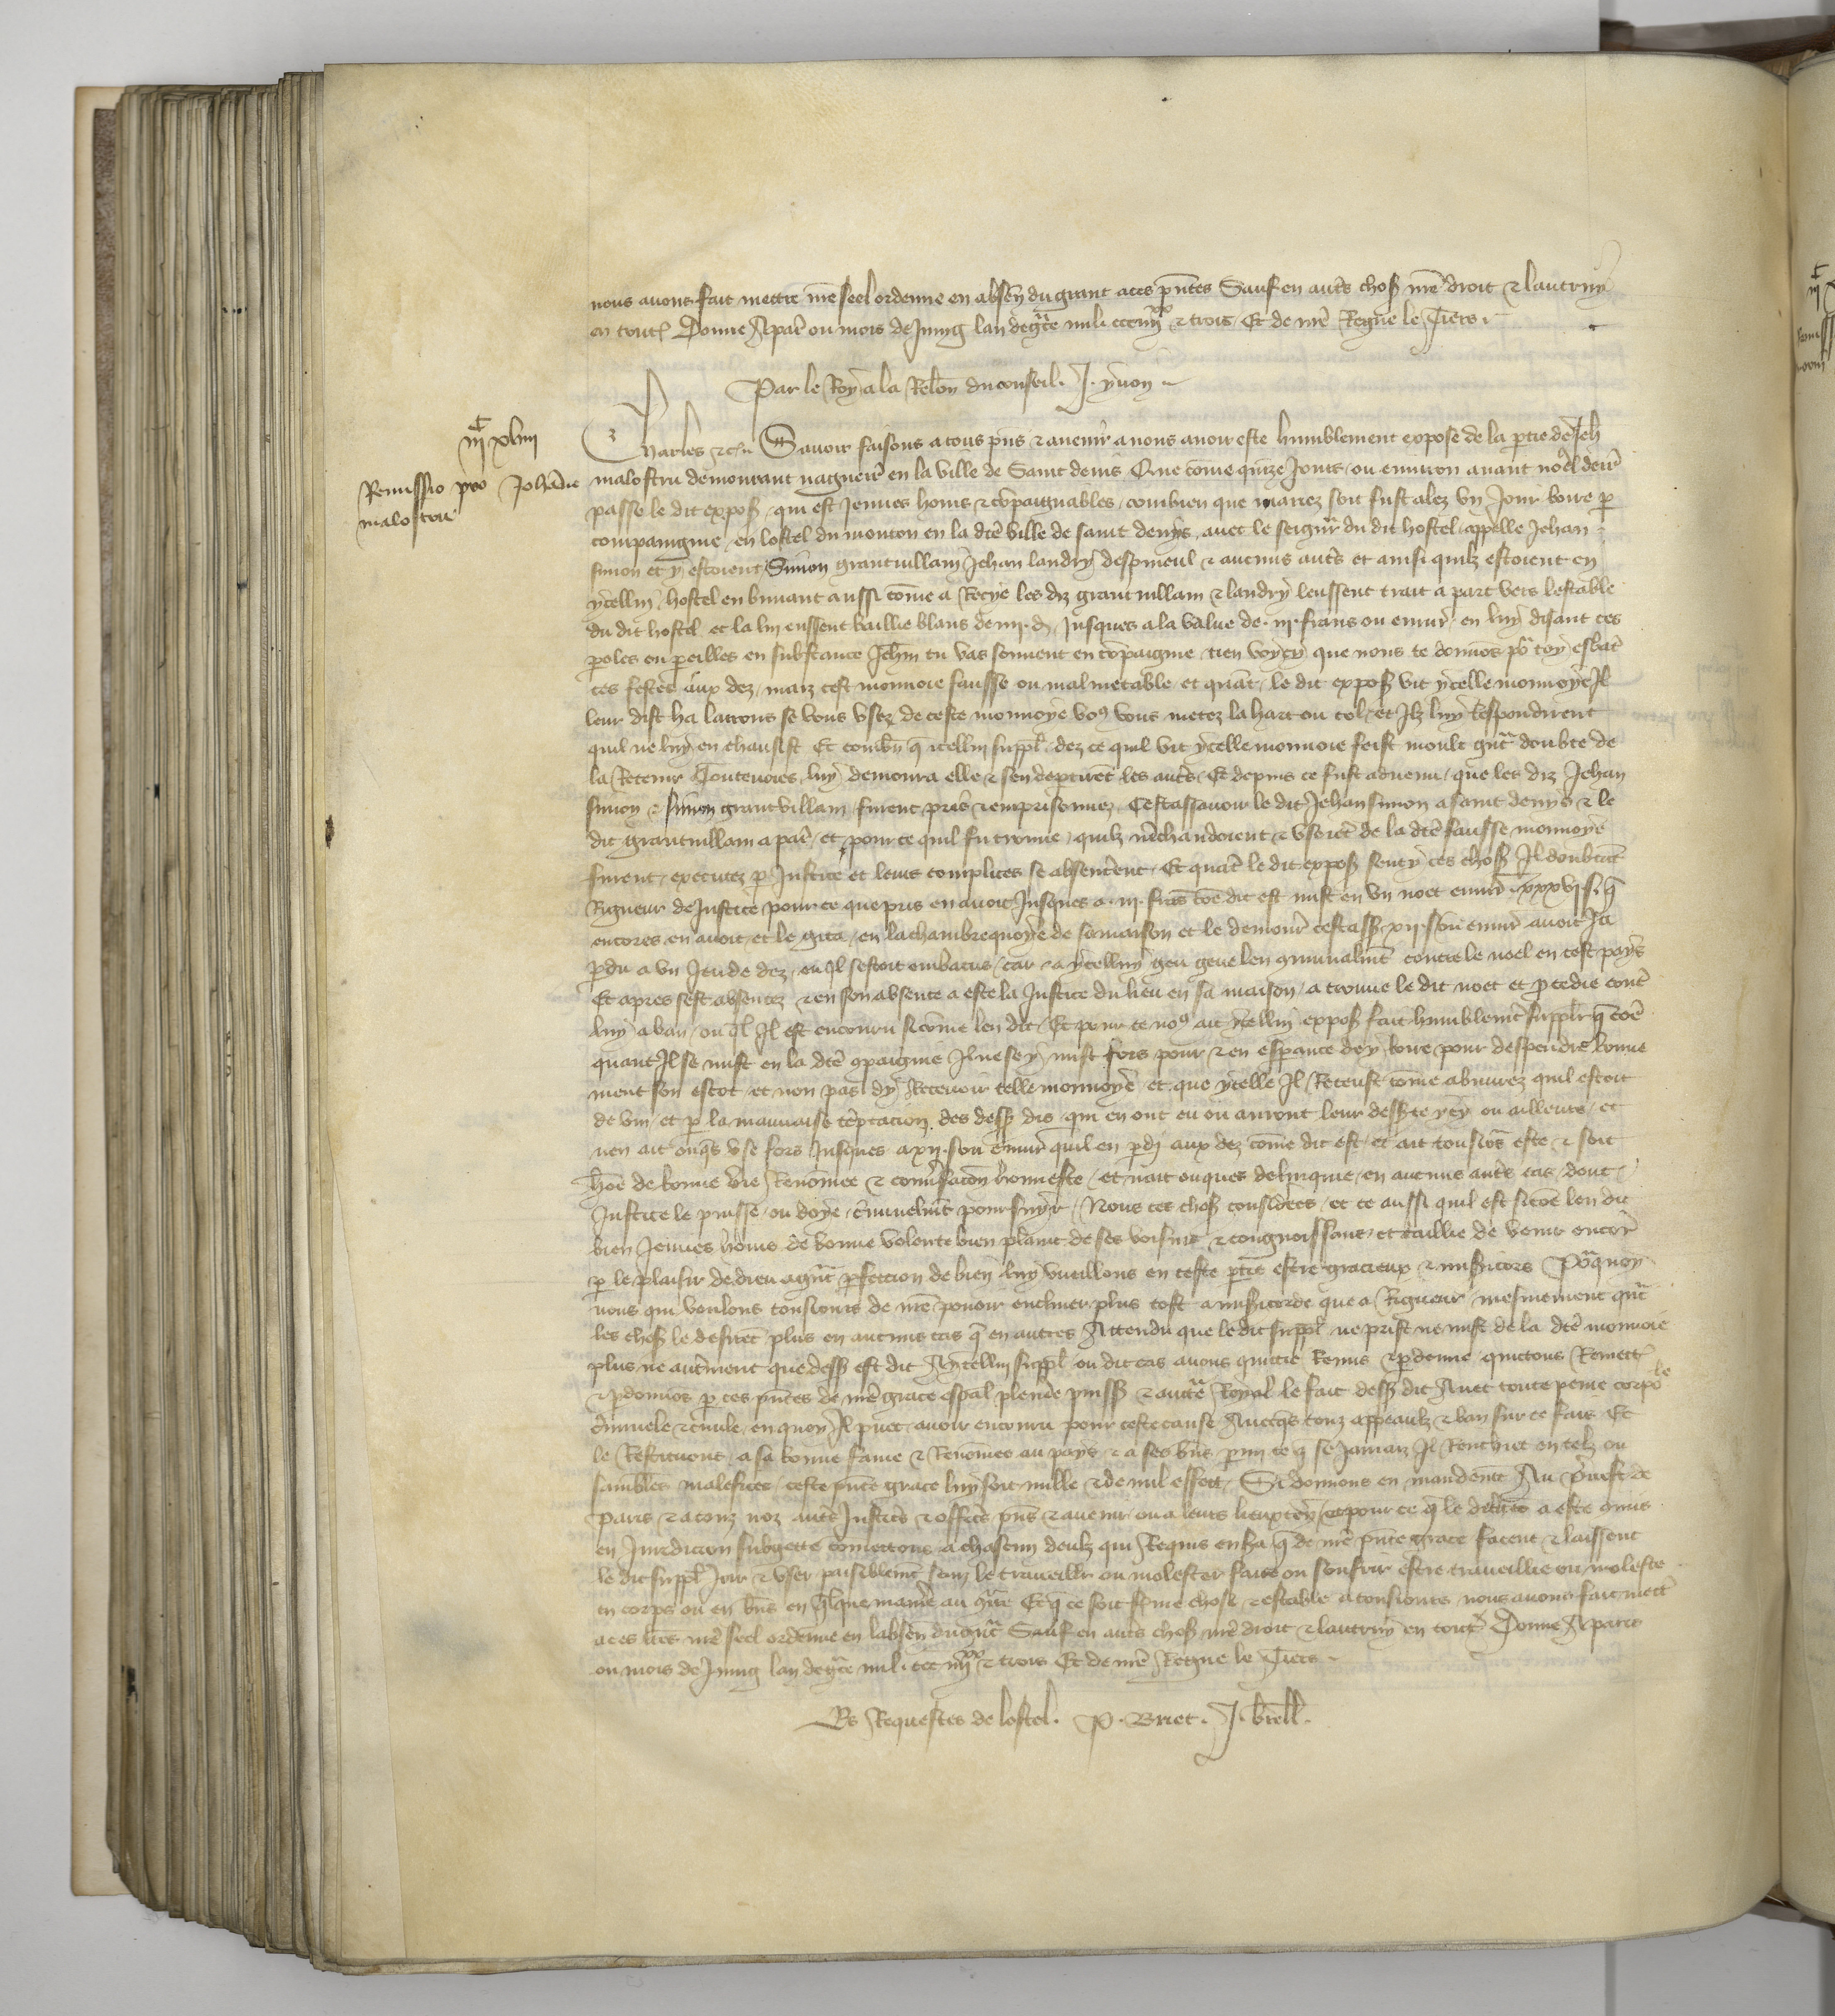 nous avons fait mettre nre seel ordenne en absen du grant a ces pntes Sauf en autres choses nre droit & lautruy
en toutes Donne A paris ou mois de Juing lan de gce mil ccc iiijxx & trois Et de nre Regne le Tiers
Par le Roy a la Relon du conseil. J. yvon
iijc xliiij
Remissio pro Johanne
malostru
Charles &c Savoir faisons a tous pns & avenir a nous avoir este humblement expose de la ptie de Jeh
malostru demourant nagueres en la ville de Saint denis Que come quize Jours ou environ avant noel derr
passe le dit expos qui est Jeunes homs & compaignables combien que mariez soit fust alez un Jour boire p
compaingnie en lostel du mouton en la dce ville de saint denys avec le seigneur du dit hostel appelle Jehan
simon et y estoient Simon grantvillain Jehan landry despineul & aucuns autres et ainsi quilz estoient en
ycellui hostel en buvant aussi come a Recye les diz grantvillain & landry leussent trait a part vers lestable
du dit hostel et la lui eussent baillie blans de iiij d. Jusques a la value de iij frans ou envir en luy disant ces
poles ou peilles en substance Jehin tu vas souvent en compaignie tien voycy que nous te donnos po toy esbat
ces festes aux dez maiz cest monnoie fausse ou mal metable et quant le dit expos vit ycelle monnoye Il
leur dist ha larrons se vous usez de ceste monnoye vous vous metez la hart ou col et Ilz luy Respondirent
quil ne luy en chausist Et combn q icellui suppl dez ce quil vit ycelle monnoie feist moult gnt doubte de
la Retenir Toutevoies luy demoura elle & sen deptiret les autres Et depuis ce fust advenu que les diz Jehan
simon & simon grantvillain furent pris & emprisonnez Cestassavoir le dit Jehan simon a saint denys & le
dit grantvillain a paris et pour ce quil fu trouve quilz mchandoient & usoiet de la dce fausse monnoye
furent executez p Justice et leurs complices se absenterent Et quant le dit expos senty ces choses Il doubtant
Rigueur de Justice pour ce que pris en avoit Jusques a iij frans come dit est mist en un noet envir xxxvj s. q
encores en avoit et le gita en la chambre quoye de sa maison et le demour cestass xij s. ou envir avoit Ja
pdu a un Jeu de dez ou Il sestoit embatus car a ycelluy geu geue len gmunalmt contre le noel en cest pays
Et apres sest absentez & en son absence a este la Justice du lieu en sa maison a trouve le dit noet et pcede cont
luy a ban ou ql Il est encouru si come len dit Et pour ce nous ait ycellui expos fait humblemt supplr q come
quant Il se mist en la dce gpaignie Il ne se y mist fors pour & en esperance dey boire pour despendre bonne
ment son escot et non pas dy Recevoir telle monnoye et que ycelle Il Receust come abuvrez quil estoit
de vin et p la mauvaise teptacion des dess dis qui en ont eu ou auront leur desserte ycy ou ailleurs et
nen ait onqs use fors Jusques a xij s. ou envir quil en pdi aux dez come dit est et ait tousios este & soit
home de bonne vie Renomee & conversacon honneste et nait onques delinquie en aucuns autres cas dont
Justice le puisse ou doye crimnelmt poursuyr Nous ces choses considerees et ce aussi quil est sicoe len dit
bien Jeunes homs de bonne volente bien plaint de ses voisins & congnoissans et taillie de venir encor
p le plaisir de dieu a gnt pfection de bien luy vueillons en ceste ptie estre gracieux & misicors Po quoy
nous qui voulons tousiours de nre pouoir encliner plus tost a misicorde que a Rigueur mesmement qnt
les choses le desiret plus en aucuns cas q en autres Attendu que le dit suppl ne prist ne mist de la dce monnoie
plus ne autrement que dess est dit A ycellui suppl ou dit cas avons quitte Remis & pdonne quictons Remett
& pdonnos p ces pntes de nre grace espal plenie puiss & aucte Royal le fait dess dit Avec toute peine corpole
criminele & civile en quoy Il puet avoir encouru pour ceste cause Avecqs touz appeaulz & ban sur ce fais Et
le Restituons a sa bonne fame & Renomee au pays & a ses bns pmi ce q se Jamaiz Il Renchiet en telz ou
samblables malefices ceste pnte grace luy soit nulle & de nul effett Si donnons en mandemt Au prevost de
paris & a touz noz autres Justices & offices pns & avenir ou a leurs lieuxten et pour ce q le delict a este gmis
en Juridicion subgette cometons a chascun deulz qui Requis en sa q de nre pnte grace facent & laissent
le dit suppl Joir & user paisiblemt sanz le travaillr ou molester faire ou souffrir estre travaillie ou moleste
en corps ou en bns en qlque maniere au gtre Et q ce soit ferme chose & estable a tousiours nous avons fait mett
a ces lres nre seel ordenne en labsen du gnt Sauf en autres choses nre droit & lautruy en toutes Donne A paris
ou mois de Juing lan de gce mil ccc iiijxx & trois Et de nre Regne le Tiers
Es Requestes de lostel. P. Briet. J. brell